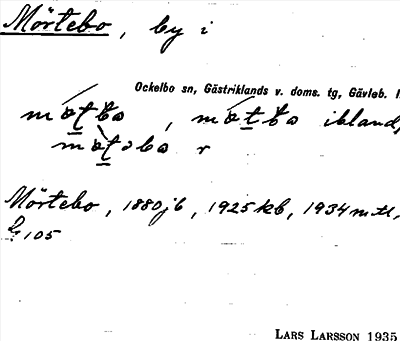 Mörtebo, by i
Ockelbo sn, Gästriklands v. doms. tg, Gävleb. l
ibland,
r
Mörtebo, 1880 jb, 1925 kb, 1934 mtl,
105
LARS LARSSON 1935